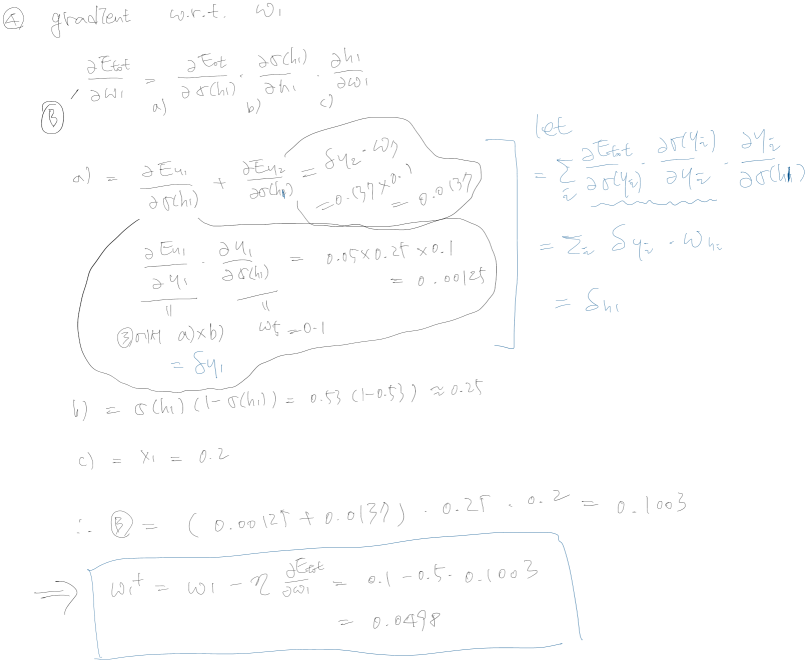 ④ gradient w.r.t. w₁
∂E_tot/∂w₁ = ∂E_tot/∂σ(h₁) · ∂σ(h₁)/∂h₁ · ∂h₁/∂w₁
Ⓑ a) b) c)
a) = ∂E_y₁/∂σ(h₁) + ∂E_y₂/∂σ(h₁) = δy₂ · w₇
= 0.137 × 0.1
= 0.0137
∂E_y₁/∂y₁ · ∂y₁/∂σ(h₁) = 0.05 × 0.25 × 0.1
= 0.00125
③에서 a)×b) w₅ = 0.1
= δy₁
let
= Σᵢ ∂E_tot/∂σ(yᵢ) · ∂σ(yᵢ)/∂yᵢ · ∂yᵢ/∂σ(h₁)
= Σᵢ δyᵢ · w_hᵢ
= δh₁
b) = σ(h₁)(1-σ(h₁)) = 0.53 (1-0.53) ≈ 0.25
c) = x₁ = 0.2
∴ Ⓑ = (0.00125 + 0.0137) · 0.25 · 0.2 = 0.1003
⇒ w₁⁺ = w₁ - η ∂E_tot/∂w₁ = 0.1 - 0.5 · 0.1003
= 0.0498